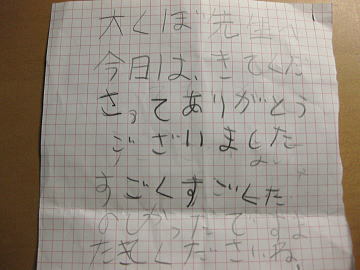 大くぼ先生へ
今日は、きてくだ
さってありがとう
ございました
すごくすごくた
のしかったですま
たきくださいね。